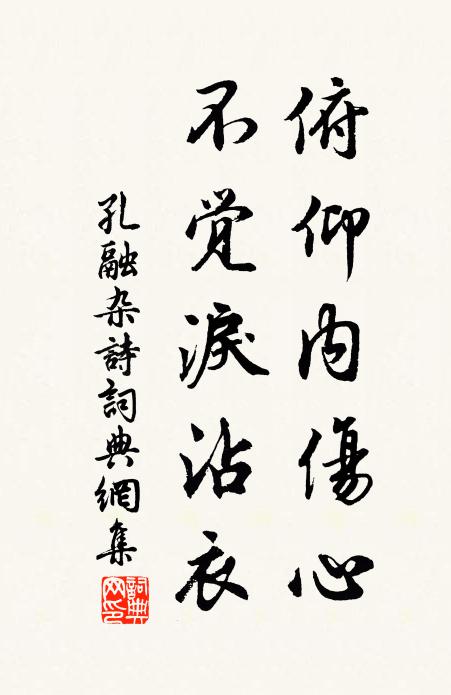 俯仰内傷心
不覚淚沾衣
孔融杂詩詞典網集
詞典
网印